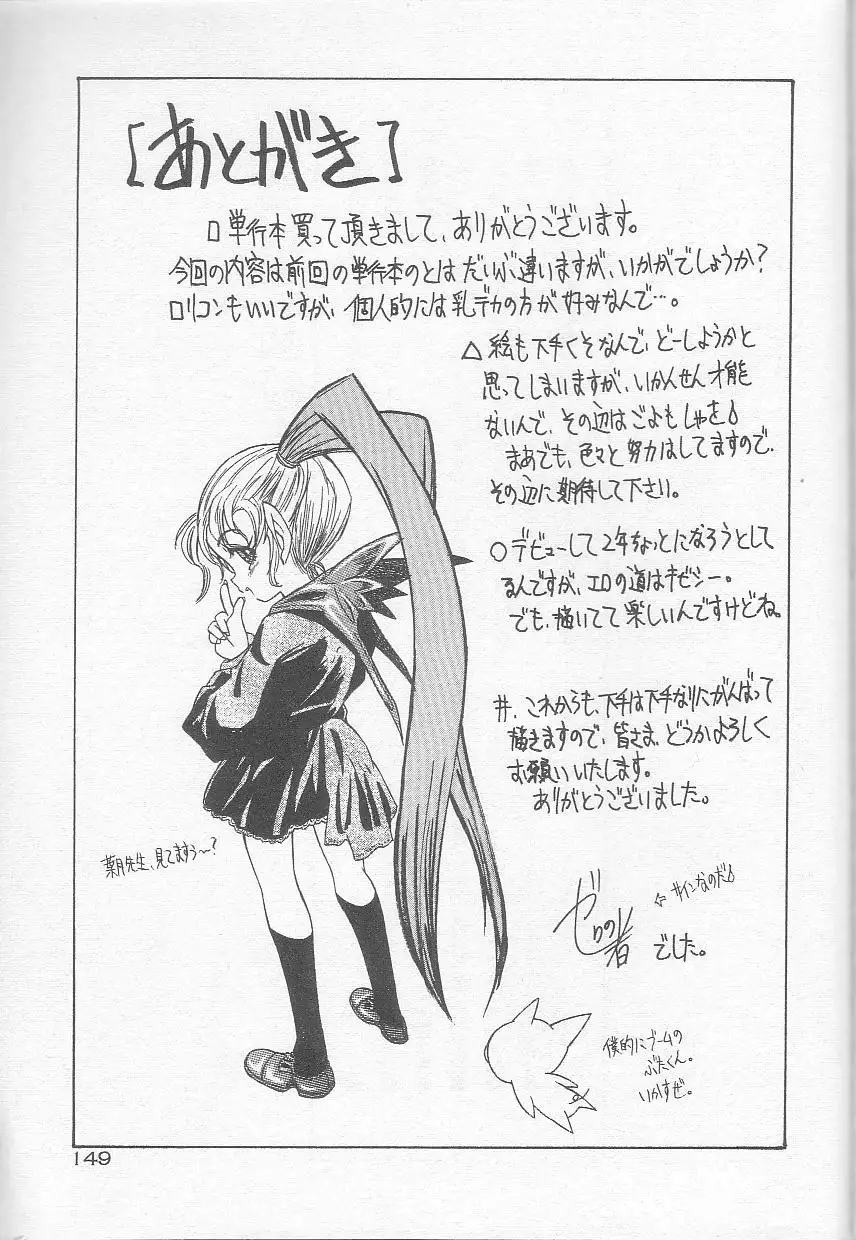 [あとがき]
□単行本買って頂きまして、ありがとうございます。
今回の内容は前回の単行本のとはだいぶ違いますが、いかがでしょうか?
ロリコンもいいですが、個人的には乳デカの方が好みなんで…。
△絵も下手くそなんで、どーしようかと
思ってしまいますが、いかんせん才能
ないんで、その辺はごよもしゃを
まあでも、色々と努力はしてますので、
その辺に期待して下さい。
○デビューして2年ちょっとになろうとして
るんですが、エロの道はキビシー。
でも、描いてて楽しいんですけどね。
井.これからも、下手は下手なりにがんばって
描きますので、皆さま、どうかよろしく
お願いいたします。
ありがとうございました。
薬月先生、見てますぅ〜?
ゼロの者 でした。
⇦サインなのだ
僕的にブームの
ぶたくん。
いかすぜ。
149